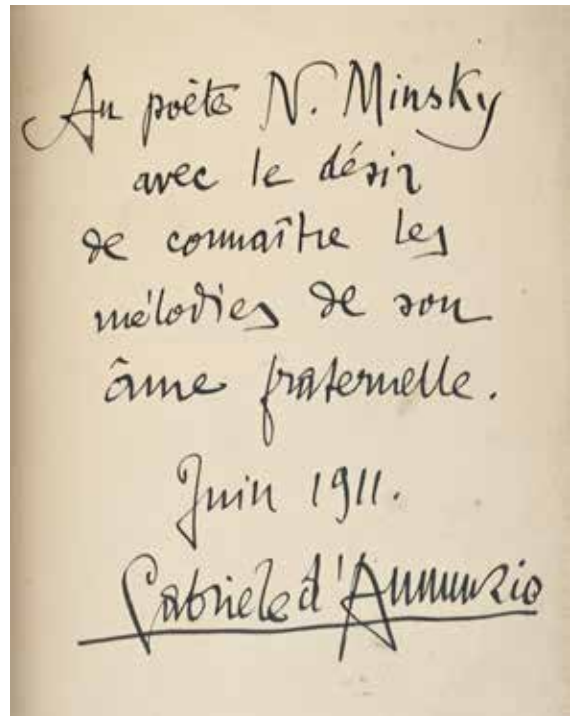 Au poète N. Minsky
avec le désir
de connaître les
mélodies de son
âme fraternelle.
Juin 1911.
Gabriele d'Annunzio